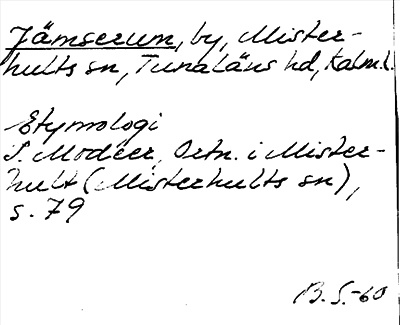 Jämserum, by, Mister-
hults sn, Tunaläns hd, Kalm.l.
Etymologi
I. Modéer, Ortn. i Mister-
hult (Misterhults sn),
s. 79
B. S.-60